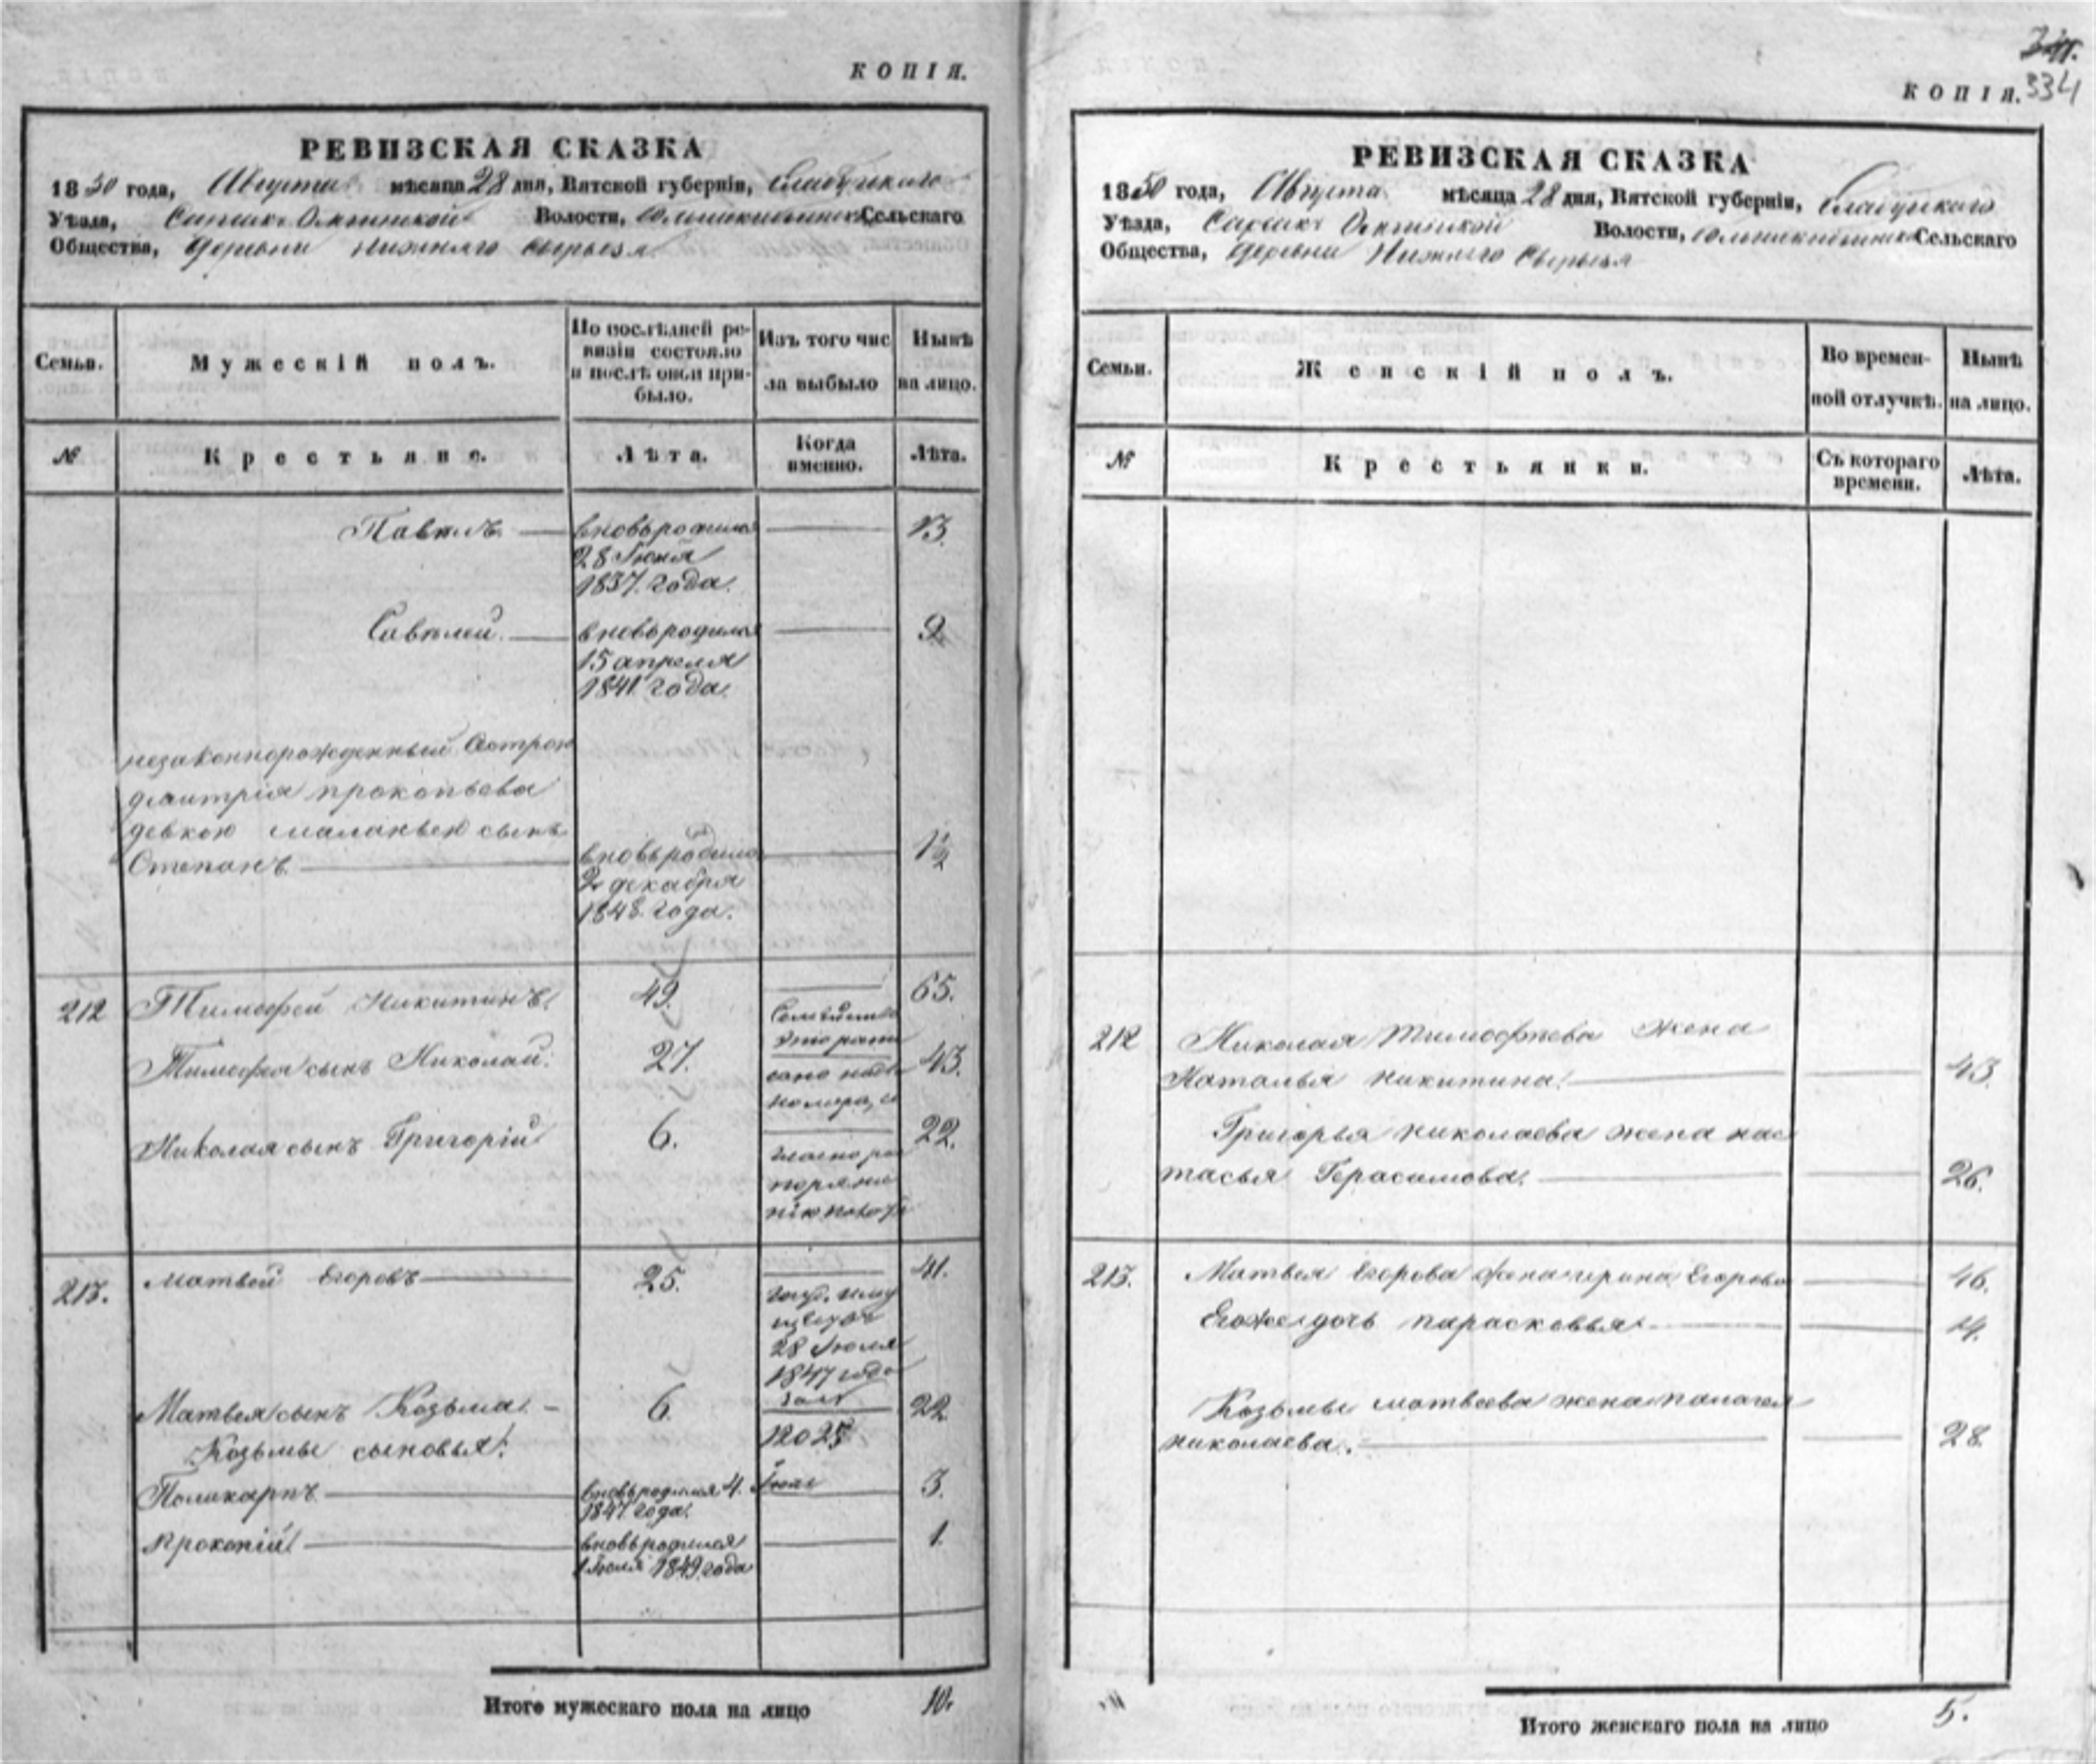 КОПІЯ.
РЕВИЗСКАЯ СКАЗКА
1850 года, Августа мѣсяца 28 дня, Вятской губерніи, Елабугскаго
Уѣзда, Волости, Сельскаго
Общества, Деревни Нижняго Сырьеза
Семьи.
Мужескій полъ.
По послѣдней ре-
визіи состояло
и послѣ онои при-
было.
Изъ того чис
ла выбыло
Нынѣ
на лицо.
№
Крестьяне.
Лѣта.
Когда
именно.
Лѣта.
Павелъ вновьродился 13.
28 Іюня
1837. года.
Савелей. вновьродился 9.
15 апреля
1841 года.
незаконнорожденный
Дмитрія прокопьева
девкою маланьею сынъ
Степанъ вновьродился 1 1/2
2 декабря
1848 года.
212 Тимофей Никитинъ 49. 65.
Семейство
Тимофея сынъ Николай. 27. 43.
номера,
Николая сынъ Григорій 6. 22.
213. Матвей Егоровъ 25. 41.
28 Іюля
1847 года
Матвея сынъ Козьма. 6. 22
№ 25
Козьмы сыновья:
Поликарпъ вновьродился 4. Іюля 3.
1847. года.
прокопій вновьродился 1.
1 Іюля 1849. года
Итого мужескаго пола на лицо 10.
334
КОПІЯ.
РЕВИЗСКАЯ СКАЗКА
1850 года, Августа мѣсяца 28 дня, Вятской губерніи, Елабугскаго
Уѣзда, Волости, Сельскаго
Общества, Деревни Нижняго Сырьеза
Семьи.
Женскій полъ.
Во времен-
ной отлучкѣ.
Нынѣ
на лицо.
№
Крестьянки.
Съ котораго
времени.
Лѣта.
212 Николая Тимофѣева жена
Наталья никитина. 43.
Григорья николаева жена нас
тасья Герасимова. 26.
213. Матвея Егорова жена ирина Егорова 46.
Егоже дочь парасковья 4.
Козьмы матвеева жена палагея
николаева. 28.
Итого женскаго пола на лицо 5.